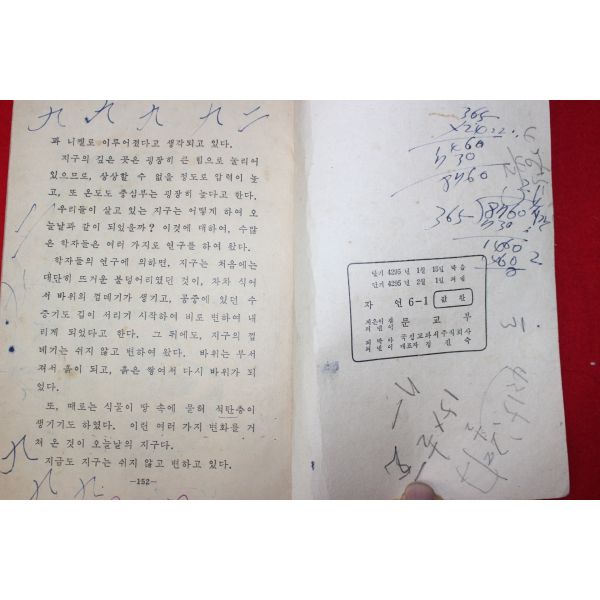 九 九 九 九 二
콰 니켈로 이루어졌다고 생각되고 있다.
지구의 깊은 곳은 굉장히 큰 힘으로 눌리어
있으므로, 상상할 수 없을 정도로 압력이 높
고, 또 온도도 중심부는 굉장히 높다고 한다.
우리들이 살고 있는 지구는 어떻게 하여 오
늘날과 같이 되었을까? 이것에 대하여, 수많
은 학자들은 여러 가지로 연구를 하여 왔다.
학자들의 연구에 의하면, 지구는 처음에는
대단히 뜨거운 불덩어리였던 것이, 차차 식어
서 바위의 껍데기가 생기고, 공중에 있던 수
증기도 김이 서리기 시작하여 비로 변하여 내
리게 되었다고 한다. 그 뒤에도, 지구의 껍
데기는 쉬지 않고 변하여 왔다. 바위는 부서
져서 흙이 되고, 흙은 쌓여서 다시 바위가 되
었다.
또, 때로는 식물이 땅 속에 묻혀 석탄층이
생기기도 하였다. 이런 여러 가지 변화를 거
쳐 온 것이 오늘날의 지구다.
지금도 지구는 쉬지 않고 변하고 있다.
—152—
365
365
단기 4295년 1월 15일 박음
단기 4295년 2월 1일 펴냄
자 연 6-1
값 환
문 교 부
국정교과서주식회사
대표자